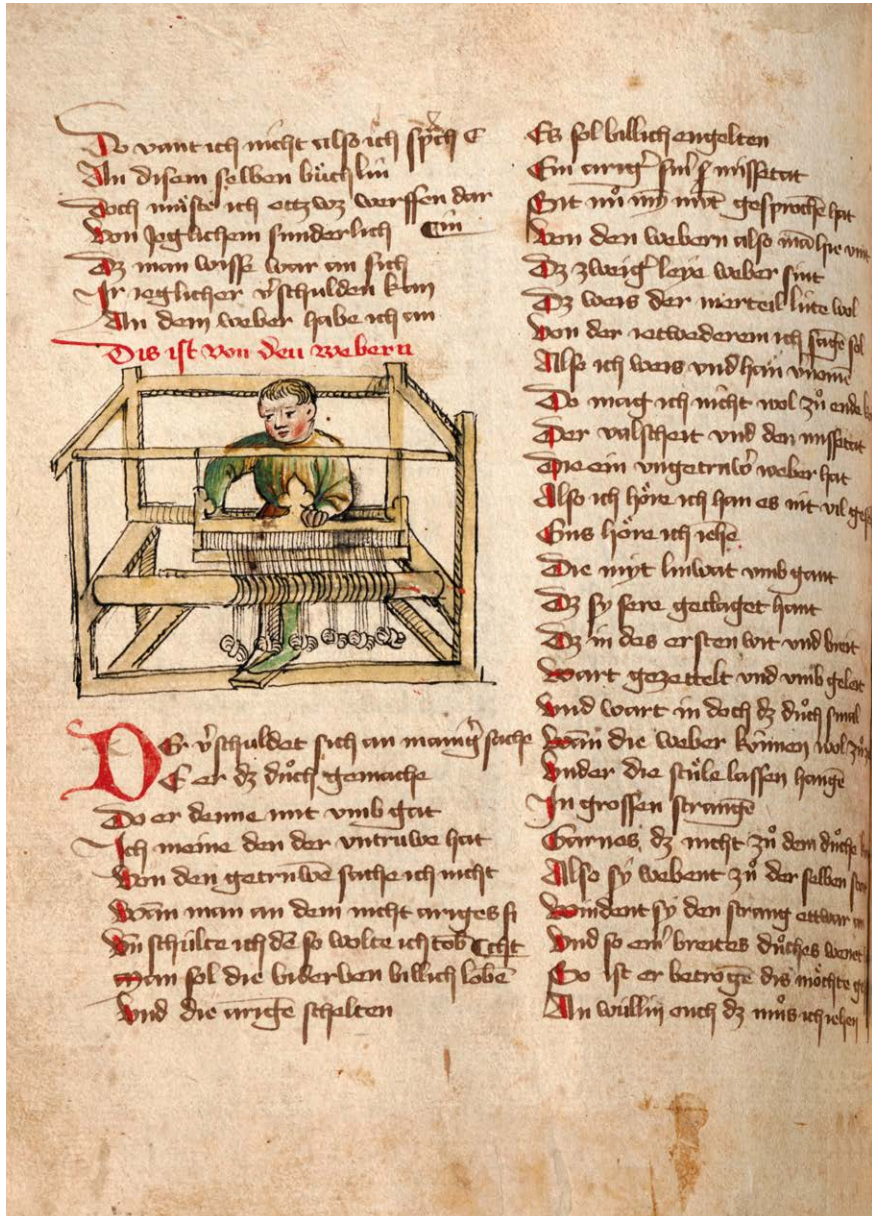 Do vant ich nicht also ich sp̄ch
An disem selben bůchlin
Doch můste ich ettzwz werffen dar
Von Jeglichem sunderlich Ein
Dz man wisse war an sich
Ir ieglicher v̄schulden kan
An dem weber habe ich an
Dis ist von den webern
DEr v̄schuldet sich an maniḡ sache
E er dz důch gemache
Do er denne mit vmb gat
Ich meine den der vntruwe hat
Von den getruwē sache ich nicht
Wān man an dem nicht ariges si
Vn̄ schulte ich dē so wolte ich tob ccht
Man sol die biderben billich lobē
Vnd die arigē schelten
Es sol billich engelten
Ein ariḡ sin̄ missetat
Sit nů gesprochē hat
Von den webern also mā hie
Dz zweiḡ leye weber sint
Dz weis der merteil lúte wol
Von der ietwederem ich sagē sol
Also ich weis vnd han v̄nomē
Do mag ich nicht wol zů ende
Der valscheit vnd den missetat
Die ein vngetruw̄ weber hat
Also ich hőre ich han es nit vil
Sus hőre ich iehē
Die myt linwat vmb gant
Dz sy sere geclaget hant
Dz in des ersten wit vnd breit
Wart gezettelt vnd vmb geleit
Vnd wart in doch dz důch smal
Wān die weber kúnnen wol
Vnder die stúle lassen hangē
In grossen strangē
Garnes, dz nicht zů dem důche
Also sy webent zů der selben
Windent sy den strang ettwar
Vnd so em̄ breites důches wenet
So ist er betrogē dis mőchte
An wullin ouch dz můs ich iehen